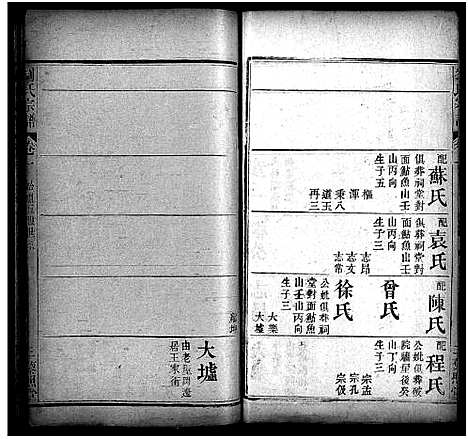 配
蘇氏
俱葬祠堂對
面鮎魚山壬
山丙向
生子五
樞
渾
秉八
道玉
再三
配
袁氏
俱葬祠堂對
面鮎魚山壬
山丙向
生子三
志昂
志文
志常
配
陳氏
曾氏
徐氏
公妣俱葬祠
堂對面鮎魚
山壬山丙向
生子三
大樂
大墟
配
程氏
公妣俱葬
山丁向
生子三
宗孟
宗孔
宗儀
氏宗譜
卷一
大墟
由老
居王家術